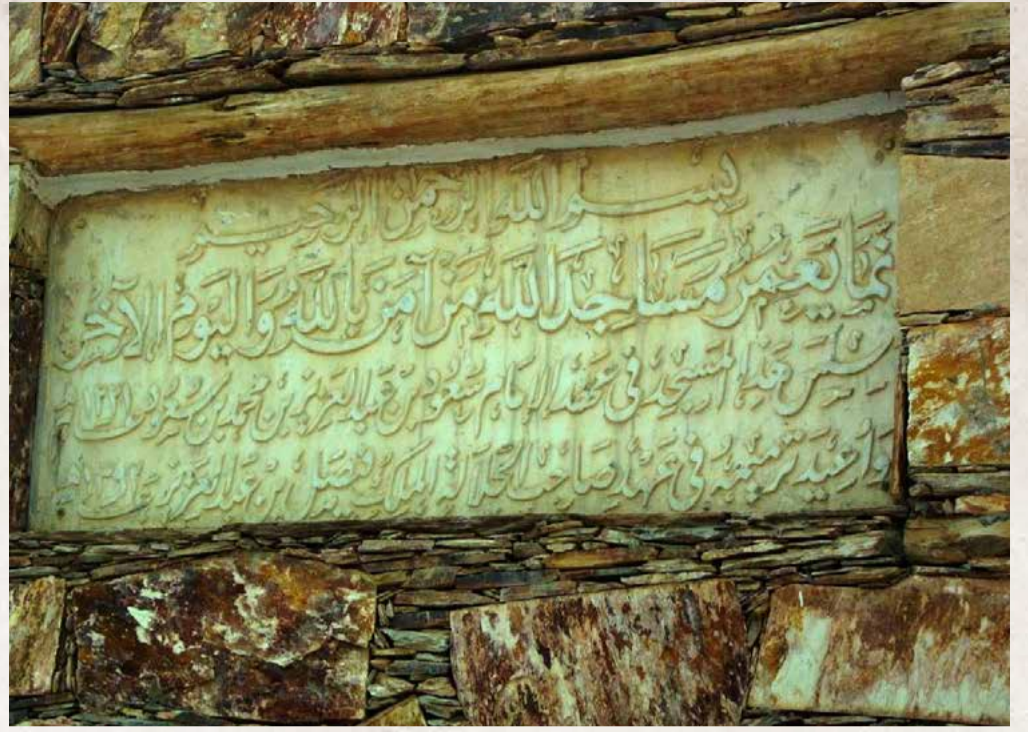 بسم الله الرحمن الرحيم
نما يَعمُرُ مَسَاجِدَ اللهِ مَنْ آمَنَ بِاللهِ وَاليَومِ الآخِرِ
هذا المسجد في عهد الإمام سعود بن عبد العزيز بن محمد بن سعود عام ١٢٢١
وأعيد ترميمه في عهد صاحب الجلالة الملك فيصل بن عبد العزيز